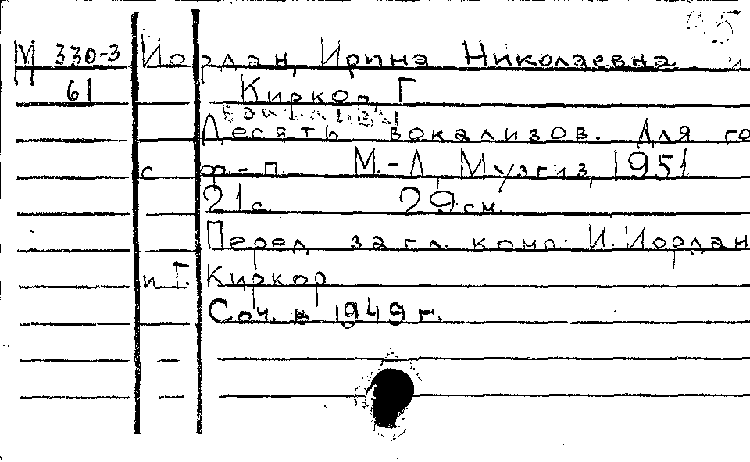 М 330-3 Иордан, Ирина Николаевна и
61 Киркор Г.
Вокализы
Десять вокализов. Для го
с ф-п. М.-Л. Музгиз, 1951
21 с. 29 см.
Перед загл. комп. И. Иордан
и Г. Киркор
Соч. в 1949 г.